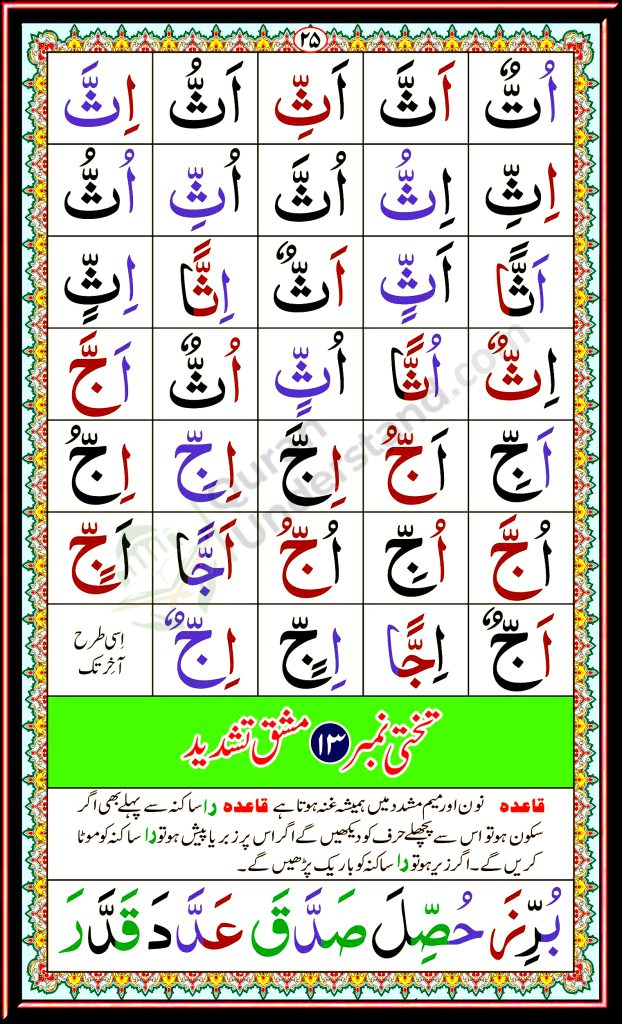 ۲۵
اُتٌّ اَثَّ اَثِّ اَثُّ اِثَّ
اِثِّ اِثُّ اُثَّ اُثِّ اُثُّ
اَثًّا اَثٍّ اَثٌّ اِثًّا اِثٍّ
اِثٌّ اُثًّا اُثٍّ اُثٌّ اَجَّ
اَجِّ اَجُّ اِجَّ اِجِّ اِجُّ
اُجَّ اُجِّ اُجُّ اَجًّا اَجٍّ
اَجٌّ اِجًّا اِجٍّ اِجٌّ
اِسی طرح
آخِر تک
تختی نمبر ۱۳ مشق تشدید
قاعدہ نون اور میم مشدد میں ہمیشہ غنہ ہوتا ہے قاعدہ را ساکنہ سے پہلے بھی اگر
سکون ہو تو اس سے پچھلے حرف کو دیکھیں گے اگر اس پر زبر یا پیش ہو تو را ساکنہ کو موٹا
کریں گے۔ اگر زیر ہو تو را ساکنہ کو باریک پڑھیں گے۔
بُرِّزَ حُصِّلَ صَدَّقَ عَدَّدَ قَدَّرَ
Quran
Understand.com